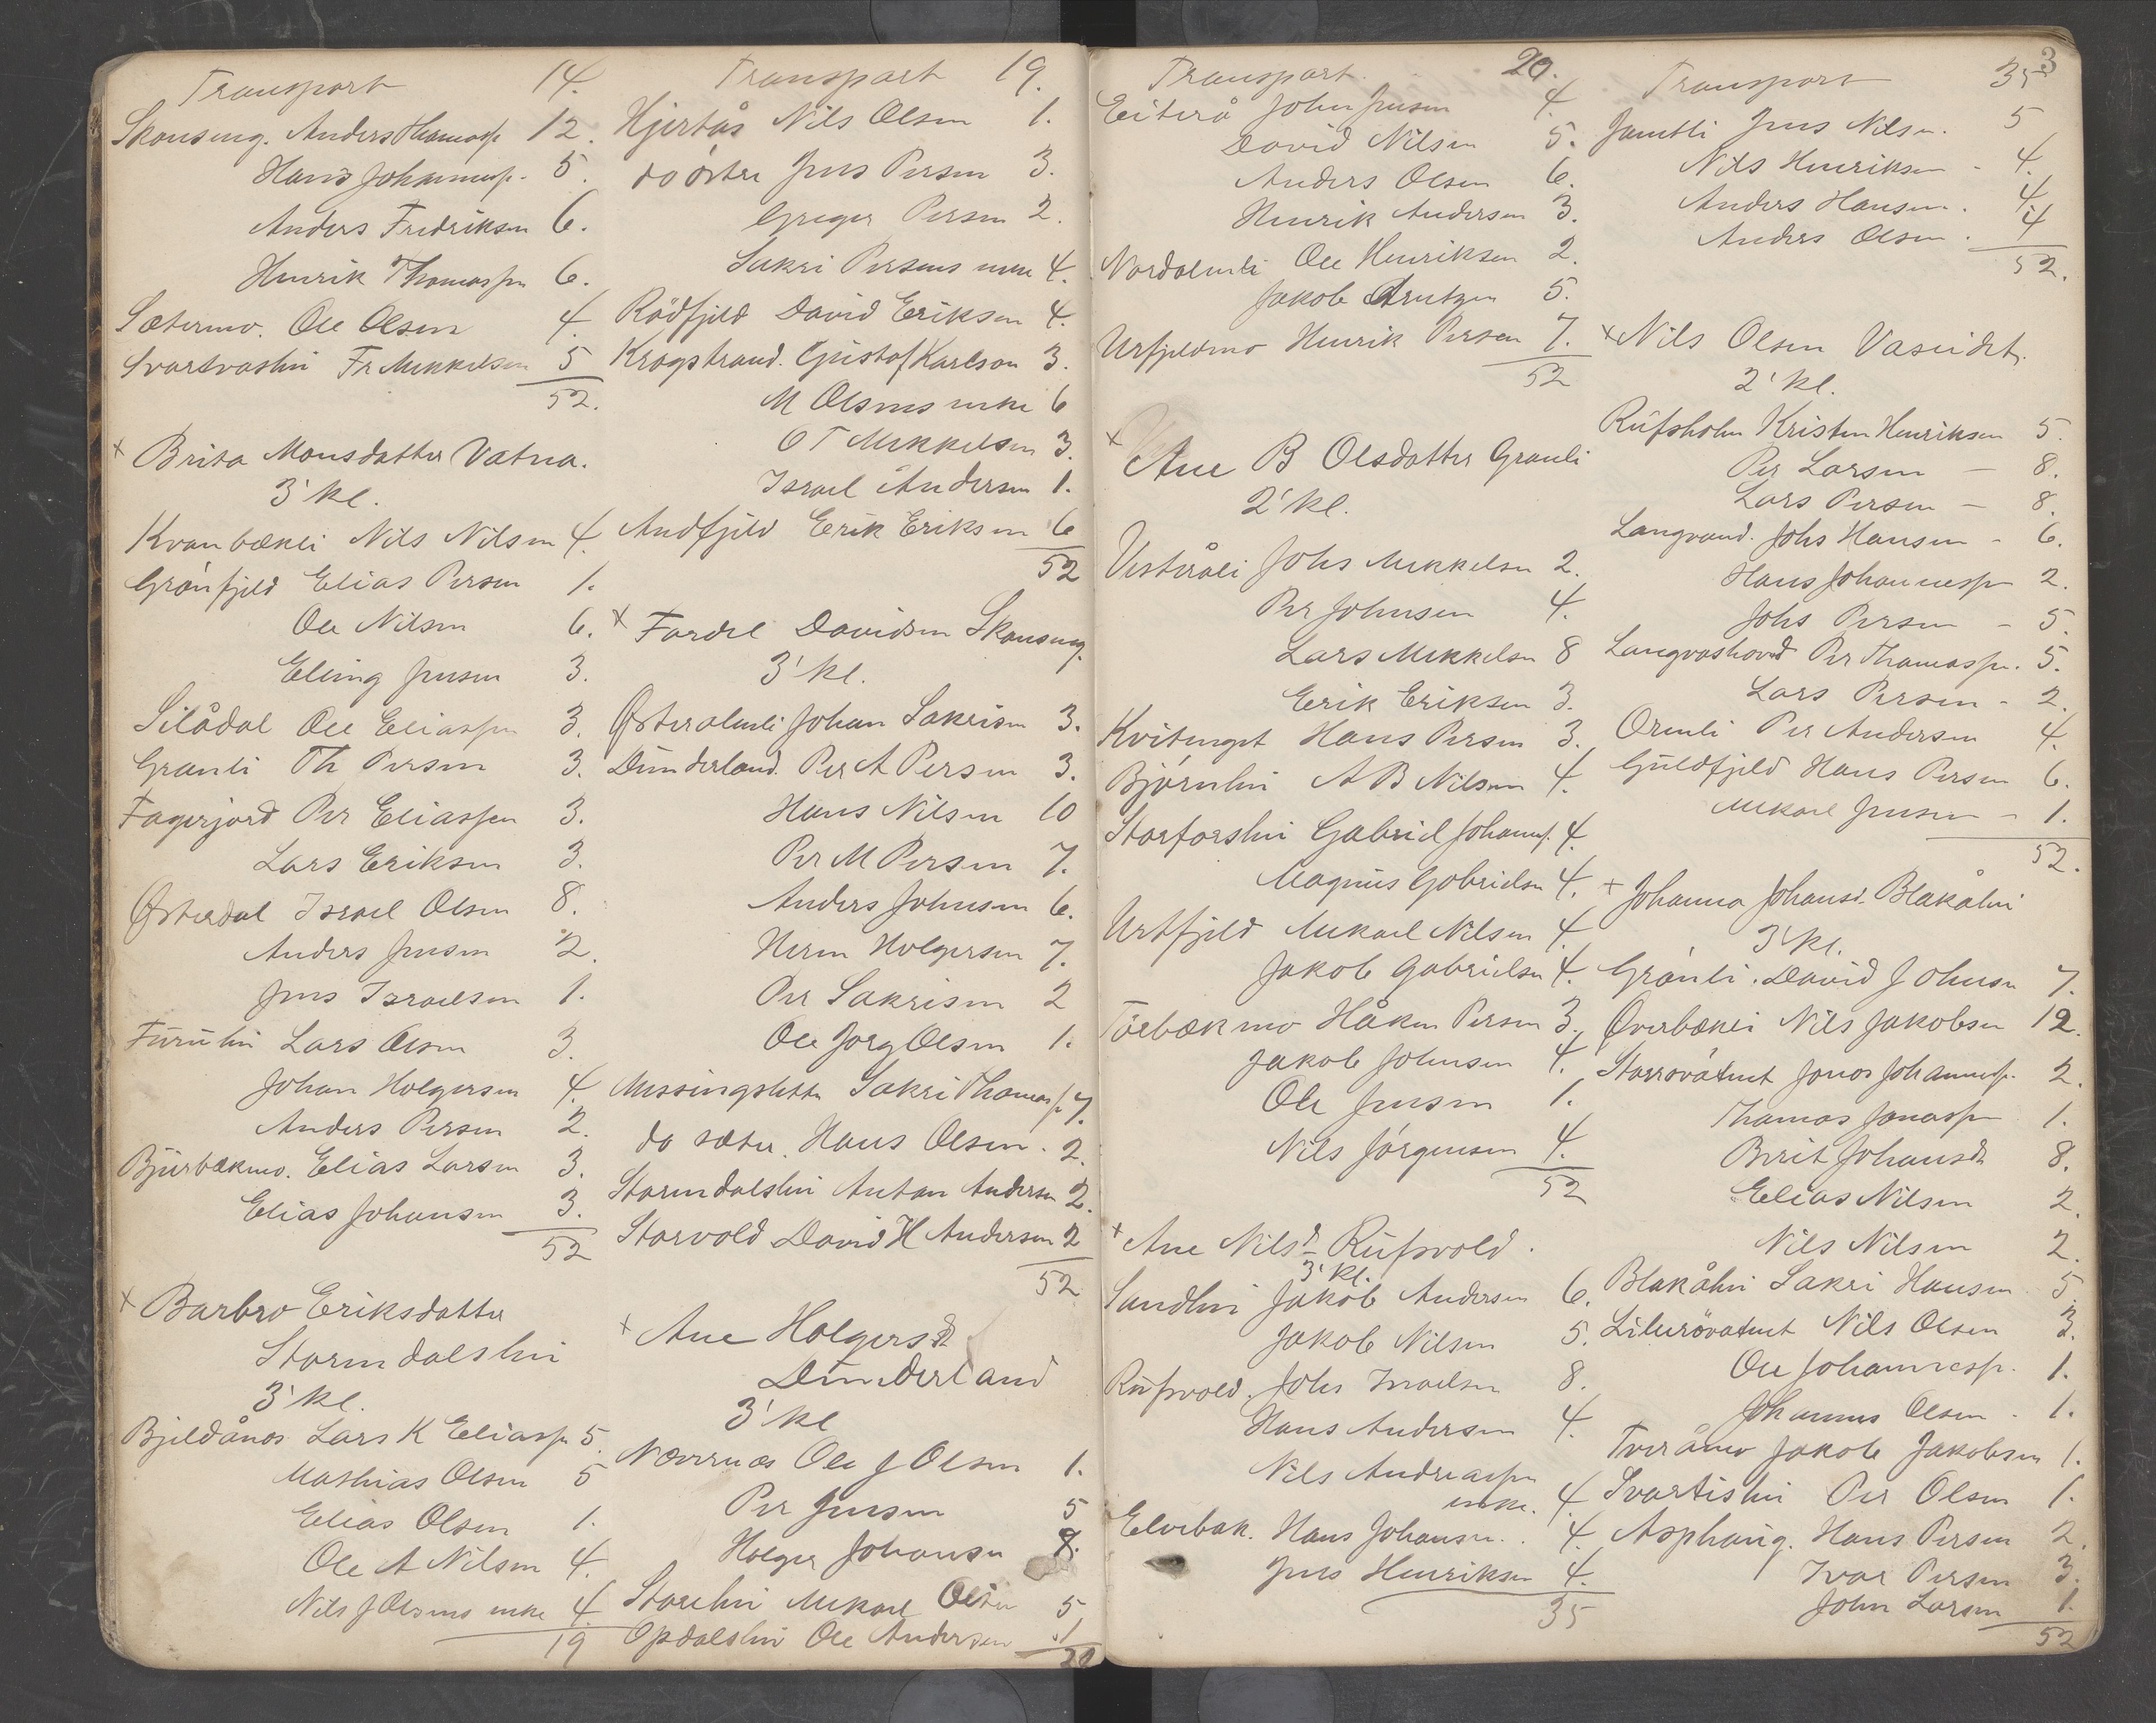 Transport 14.
Skonseng. Anders Thomass. 12.
Hans Johanness. 5.
Anders Fredriksen 6.
Henrik Thomassen 6.
Sætermo. Ole Olsen 4.
Svartvaslien Fr Mikkelsen 5
52.
x Brita Monsdatter Vatna.
3' kl.
Kvanbækli Nils Nilsen 4.
Grönfjeld Elias Persen 1.
Ole Nilsen 6.
Eling Jensen 3.
Silådal Ole Eliassen 3.
Granli Th Persen 3.
Fagerjord Per Eliassen 3.
Lars Eriksen 3.
Østerdal Israel Olsen 8.
Anders Jensen 2.
Jens Israelsen 1.
Furulin Lars Olsen 3.
Johan Holgersen 4.
Anders Persen 2.
Bjurbækmo. Elias Larsen 3.
Elias Johansen 3.
52
x Barbro Eriksdatter
Stormdalshei
3' kl.
Bjeldånes Lars K Eliass. 5.
Mathias Olsen 5
Elias Olsen 1.
Ole A Nilsen 4.
Nils J Olsens enke 4
19
Transport 19.
Hjertås Nils Olsen 1.
do östre Jens Persen 3.
Greger Persen 2.
Sakri Persens enke 4.
Rödfjeld David Eriksen 4.
Krogstrand. Gustaf Karlson 3.
M Olsens enke 6
O T Mikkelsen 3.
Israel Andersen 1.
Andfjeld Erik Eriksen 6
52
x Fardel Davidsen Skonseng.
3' kl.
Østeralmli Johan Sakrisen 3.
Dunderland. Per A Persen 3.
Hans Nilsen 10
Per M Persen 7.
Anders Johnsen 6.
Herm Holgersen 7.
Per Sakrisen 2
Ole Jorg Olsen 1.
Messingsletten Sakri Thomass. 7.
do sæter. Hans Olsen. 2.
Stormdalshei Anton Andersen 2.
Storvold David H Andersen 2
52
x Ane Holgersd
Dunderland
3' kl
Nævernes Ole J Olsen 1.
Per Jensen 5
Holger Johansen 8.
Storelin Mikael Olsen 5
Opdalslin Ole Andersen 1
20
Transport 20.
Eiterå John Jensen 4.
David Nilsen 5.
Anders Olsen 6.
Henrik Andersen 3.
Nordalmli Ole Henriksen 2.
Jakob Arntzen 5.
Urfjeldmo Henrik Persen 7.
52
x Ane B Olsdatter Granli
2' kl.
Vesteråli Johs Mikkelsen 2.
Per Johnsen 4.
Lars Mikkelsen 8
Erik Eriksen 3.
Kvitenget Hans Persen 3.
Björnhei A B Nilsen 4.
Storforshei Gabriel Johanns. 4.
Magnus Gabrielsen 4.
Urtfjeld Mikael Nilsen 4.
Jakob Gabrielsen 4.
Törbækmo Håken Persen 3.
Jakob Johnsen 4.
Ole Jensen 1.
Nils Jörgensen 4.
52
x Ane Nilsd Rufsvold.
3' kl.
Sandhei Jakob Andersen 6.
Jakob Nilsen 5.
Rufsvold. Johs Israelsen 8.
Hans Andersen 4.
Nils Andreassen
enke. 4.
Elvebak. Hans Johansen. 4.
Jens Henriksen 4.
35
3
Transport 35
Jamtli Jens Nilsen. 5
Nils Henriksen - 4.
Anders Hansen. 4.
Anders Olsen. 4
52.
x Nils Olsen Vaseidet.
2' kl.
Rufsholm Kristen Henriksen 5.
Per Larsen - 8.
Lars Persen - 8.
Langvand. Johs Hansen - 6.
Hans Johannessen 2.
Johs Persen - 5.
Langvashoved Per Thomassen. 5.
Lars Persen - 2.
Ormli Per Andersen 4.
Guldfjeld Hans Persen 6.
Mikael Jensen - 1.
52.
+ Johanna Johansd. Blakålin
3' kl.
Grönli. David Johnsen 7.
Överbækli Nils Jakobsen 12.
Storrövatnet Jonas Johanness. 2.
Thomas Jonassen 1.
Berit Johansdr 8.
Elias Nilsen 2.
Nils Nilsen 2.
Blakålin Sakri Hansen 5.
Lillerövatnet Nils Olsen 3.
Ole Johanness. 1.
Johannes Olsen. 1.
Tveråmo Jakob Jakobsen 1.
Svartishei Per Olsen 1.
Asphaug. Hans Persen 2.
Ivar Persen 3.
John Larsen 1.
52